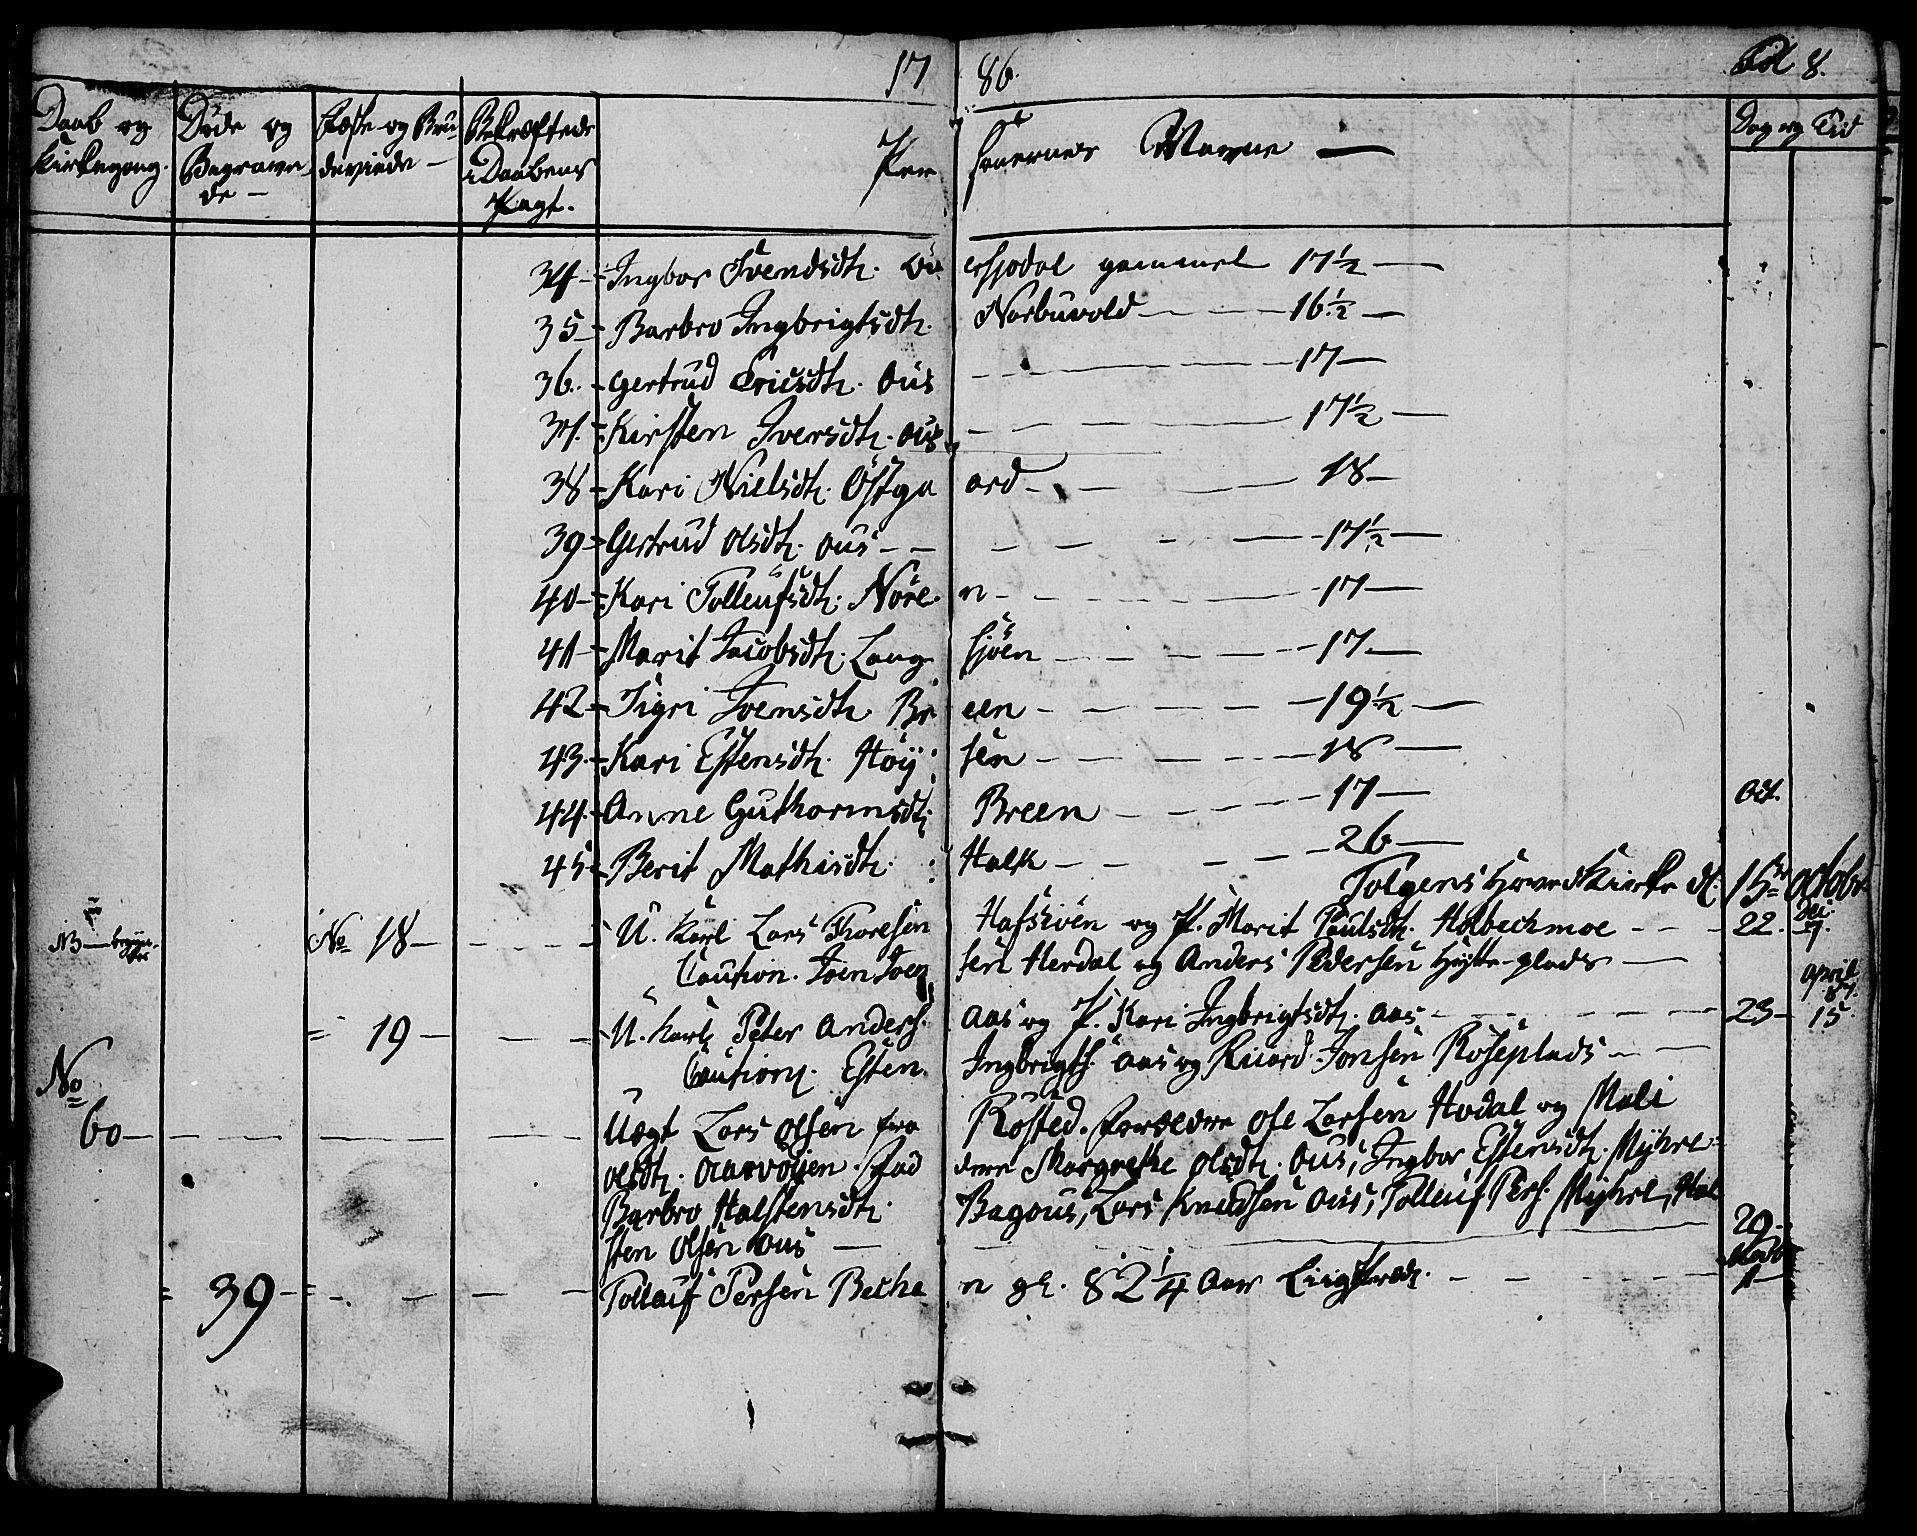 1786. Fol 8.
Daab og Kirkegang. Døde og Begravede — Fæste og Brudeviede — Bekræftede Daabens Pagt. Personernes Navne — Dag og Tid
34 Ingbor Svendsdtr. Øversjødal gammel 17½ —
35 Barbro Ingbrigtsdtr. Narbuvold — 16½ —
36. Gertrud Ericsdtr. Ous — 17 —
37. Kirsten Iversdtr. Ous — 17½ —
38 Kari Nielsdtr. Östgaard — 18 —
39 Gertrud Olsdtr. Ous — 17½ —
40 Kari Tolleufsdtr. Nören — 17 —
41 Marit Jacobsdtr. Langsjöen — 17 —
42 Sigri Joensdtr. Breen — 19½ —
43. Kari Estensdtr. Höÿsen — 18 —
44. Anne Guthormsdtr. Breen — 17 — Oct.
45 Berit Mathisdtr. Halk — 26 —
Tolgens Hoved Kirke d. 15de October
NB No 18 — U. Karl Lars Thoresen Hafsiöen og P. Marit Paulsdtr. Holbechmoe — 22.
Caution. Joen Joensen Herdal og Anders Pedersen Hÿtte-plads — April 87.
19 — U. Karl Peter Anders. Aas og P. Kari Ingbrigtsdtr. Aas — 23 — 15.
Caution. Esten Ingbrigts. Aas og Riiard Jonsen Röseplads —
No 60 — Uægt Lars Olsen fra Røsted. Forældre Ole Larsen Hodal og Mali
Olsdtr. Aarvöÿen. Faddere Margrethe Olsdtr. Ous, Ingbor Estensdtr. Mÿhre
Barbro Halstensdtr. Bagous, Lars Knudsen Ous, Tolleuf Pers. Mÿhre, Hal
sten Olsen Ous — 29
39 — Tolleuf Persen Bechen gl. 82¼ Aar — 1